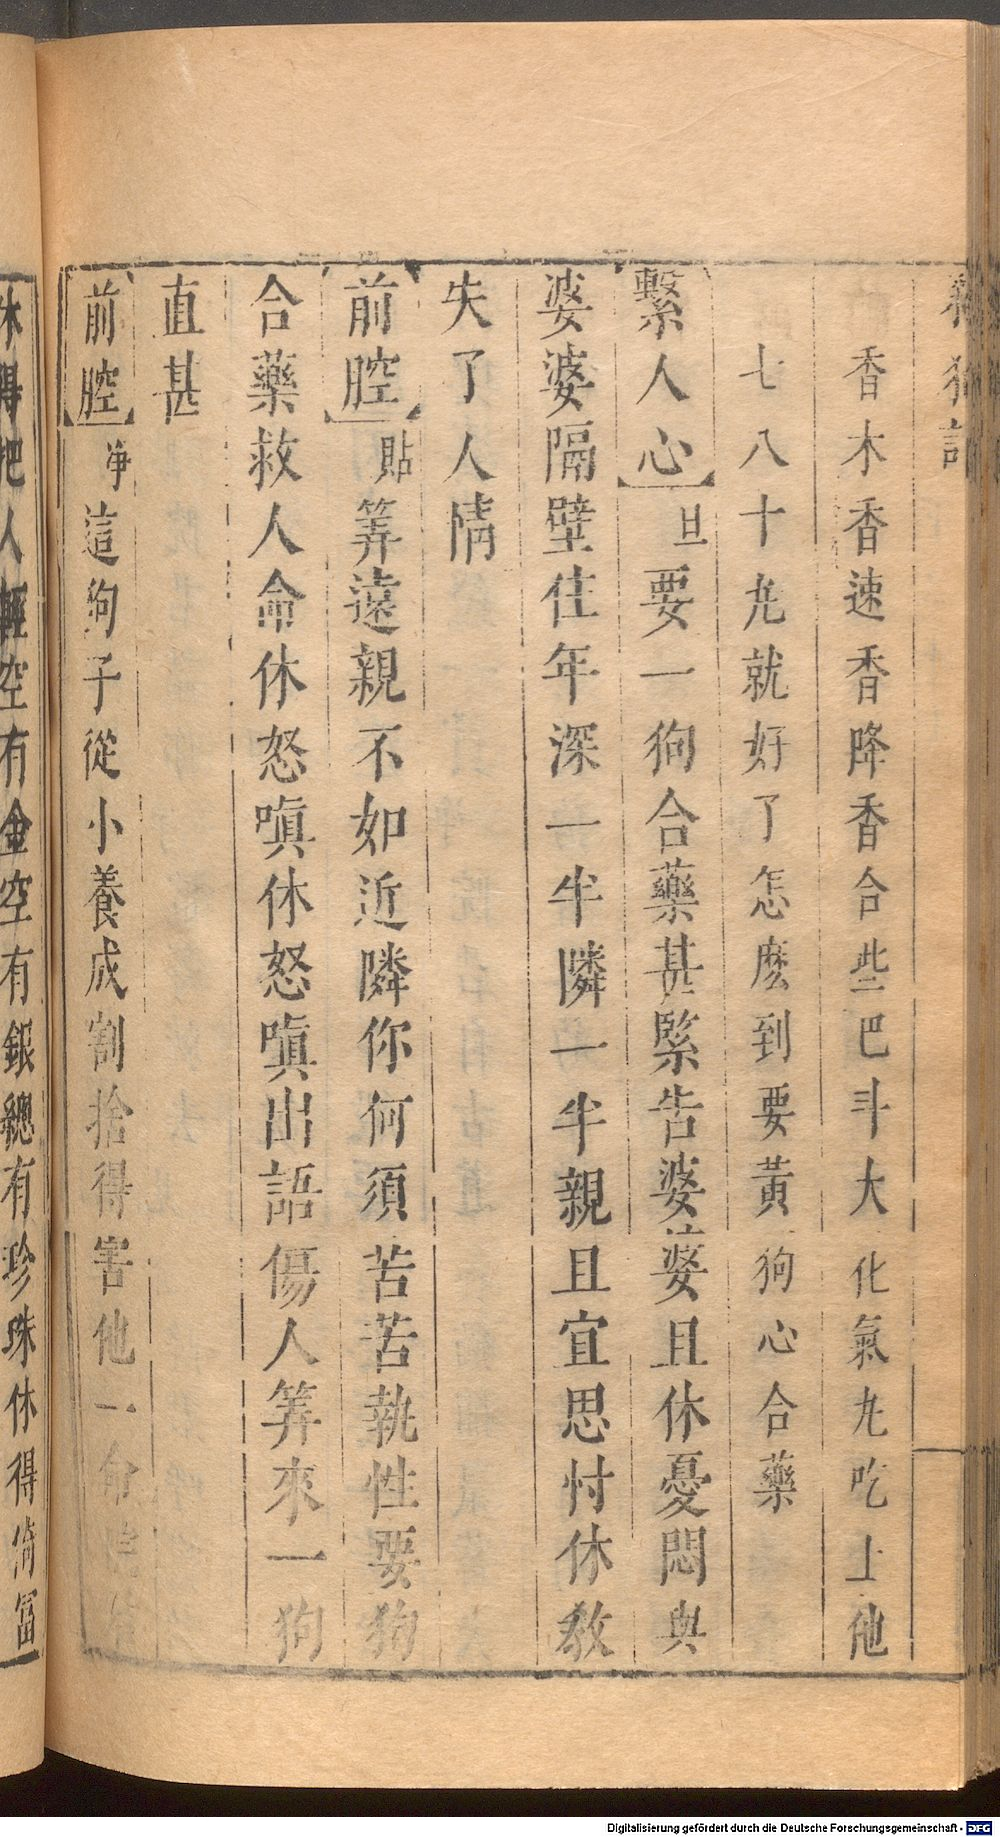 殺狗記
香木香速香降香合些巴斗大化氣丸吃上他
七八十丸就好了怎麽到要黃狗心合藥
繫人心 旦要一狗合藥甚緊告婆婆且休憂悶與
婆婆隔壁住年深一半隣一半親且宜思忖休教
失了人情
前腔 貼筭遠親不如近隣你何須苦苦執性要狗
合藥救人命休怒嗔休怒嗔出語傷人筭來一狗
直甚
前腔 净這狗子從小養成割捨得害他一命
休得把人輕空有金空有銀總有珍珠休得倚富
Digitalisierung gefördert durch die Deutsche Forschungsgemeinschaft - DFG